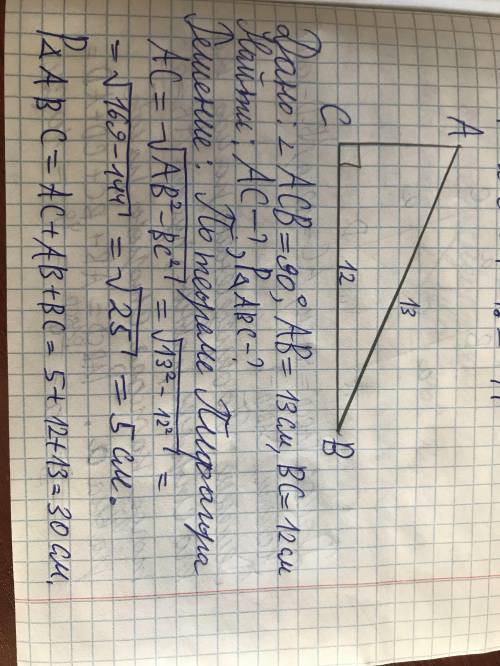 A
13
C
12
B
Дано: ∠ ACB = 90°, AB = 13 см, BC = 12 см
Найти: AC - ?, P△ABC - ?
Решение: По теореме Пифагора
AC = √AB² - BC² = √13² - 12² =
= √169 - 144 = √25 = 5 см.
P△ABC = AC + AB + BC = 5 + 12 + 13 = 30 см,